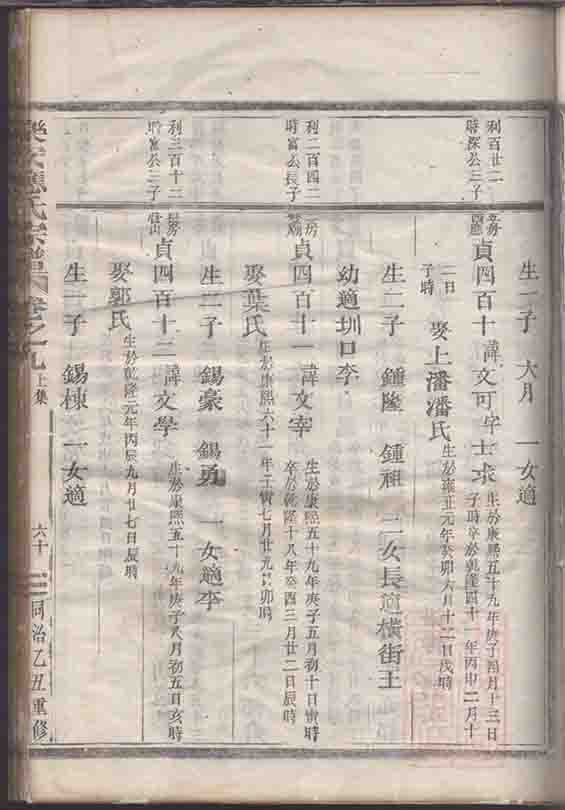 生一子 大月 一女適
利百廿二
時探公三子
貞四百十 諱文可字士求
生於康熙五十九年庚子 月十三日
子時卒於乾隆四十一年丙申二月十
二日
子時
娶上潘潘氏 生於雍正元年癸卯六月十二日戌時
生二子 鍾隆 鍾祖 二女長適橫街王
幼適圳口李
利二百四二
時富公長子
貞四百十一 諱文宰
生於康熙五十九年庚子五月初十日寅時
卒於乾隆十八年癸酉三月廿二日辰時
娶葉氏 生於康熙六十一年壬寅七月廿九日卯時
生二子 錫豪 錫勇 一女適李
利三百十二
時富公三子
貞四百十二 諱文學 生於康熙五十九年庚子八月初五日亥時
娶郭氏 生於乾隆元年丙辰九月廿七日辰時
生一子 錫棟 一女適
應氏宗譜 卷之九 上集 六十 同治乙丑重修